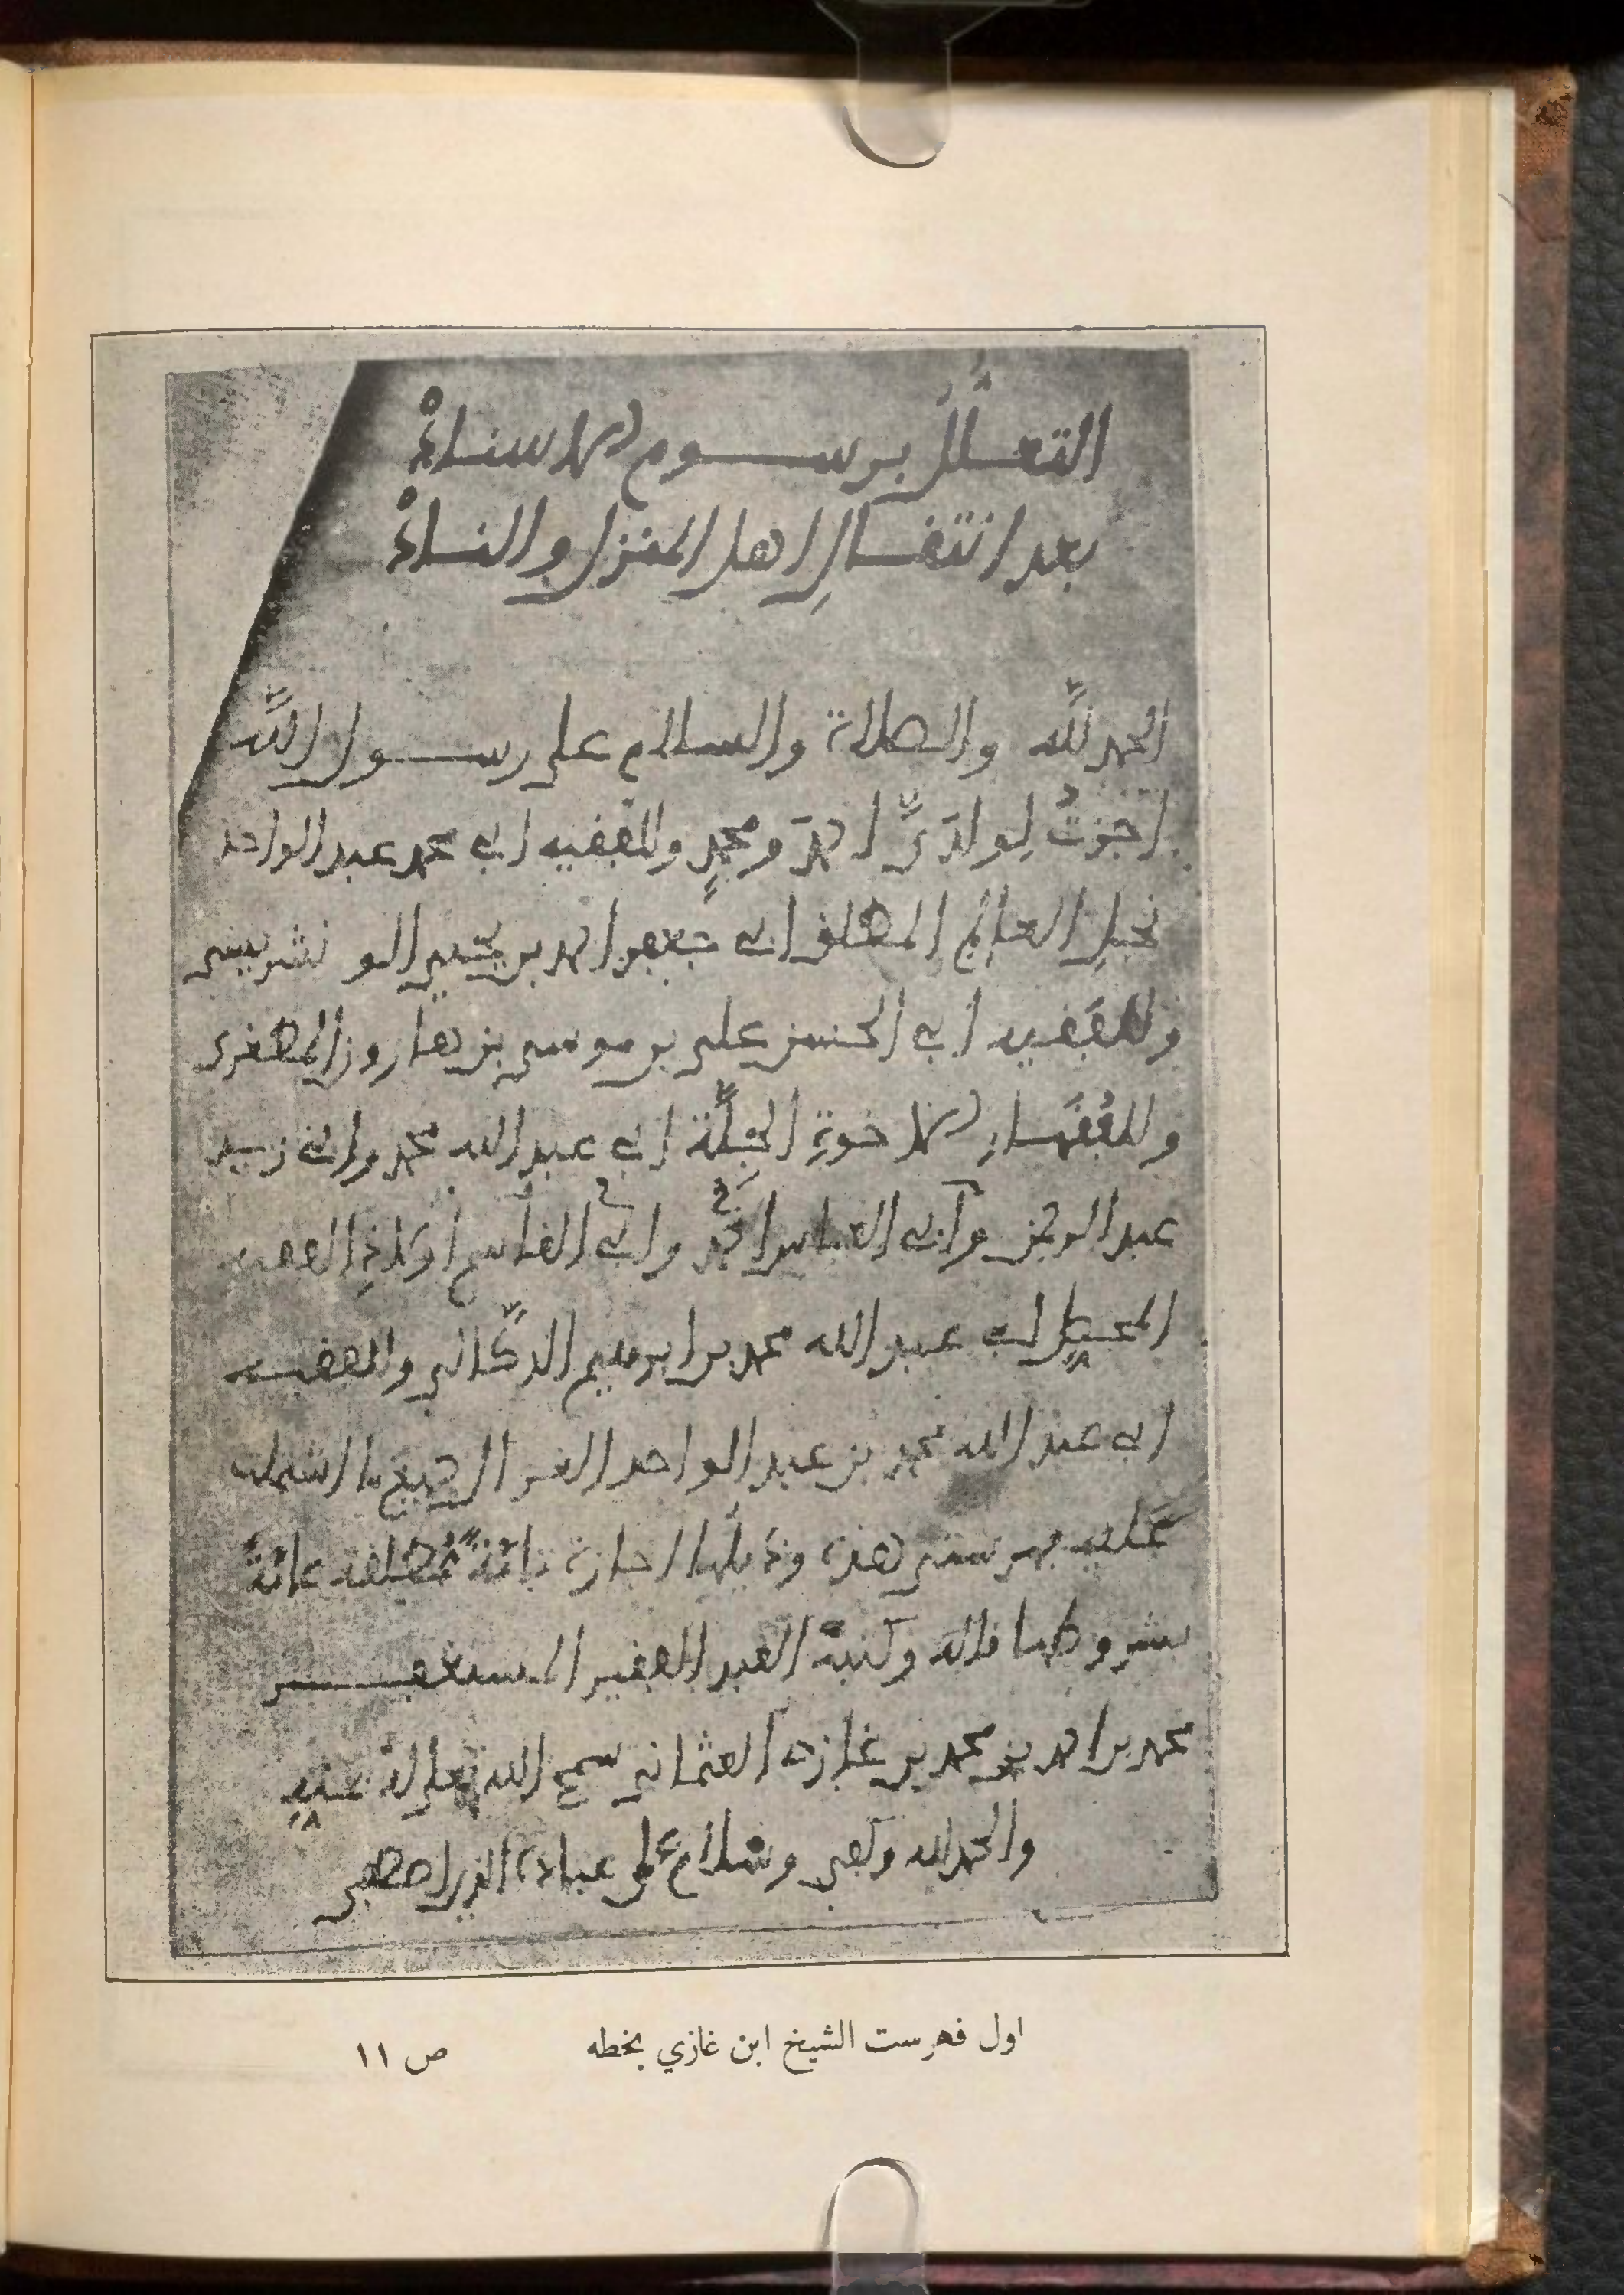 التعلُّلُ برسوم الاسنادْ
بعد انتقالِ اهل المنزل والنادْ
الحمد لله والصلاة والسلام على رسول الله
اجزتُ لولدَيَّ احمدَ ومحمدٍ وللفقيه ابي محمد عبد الواحد
نجلِ العالِم المطلق ابي جعفر احمد بن يحيى الونشريسي
وللفقيه ابي الحسن علي بن موسى بن هارون المطغري
وللفُقَهاءِ الاخوةِ الجِلَّة ابي عبد الله محمد وابي زيد
عبد الرحمن وأبي العباس احمد وابي القاسم أولادِ الفقيه
ابي عبد الله محمد بن ابرهيم الدكّالي وللفقيه
ابي عبد الله محمد بن عبد الواحد الغزال جميعَ ما اشتملت
عليه فهرستي هذه وذيلها اجازة تامّةً مُطلقة عامّةً
بشروطها قاله وكتبه العبد الفقير المستغفر
محمد بن احمد بن محمد بن غازي العثماني سمح الله تعالى له بمنه
والحمد لله وكفى وسلام على عباده الذين اصطفى
اول فهرست الشيخ ابن غازي بخطه ص ١١